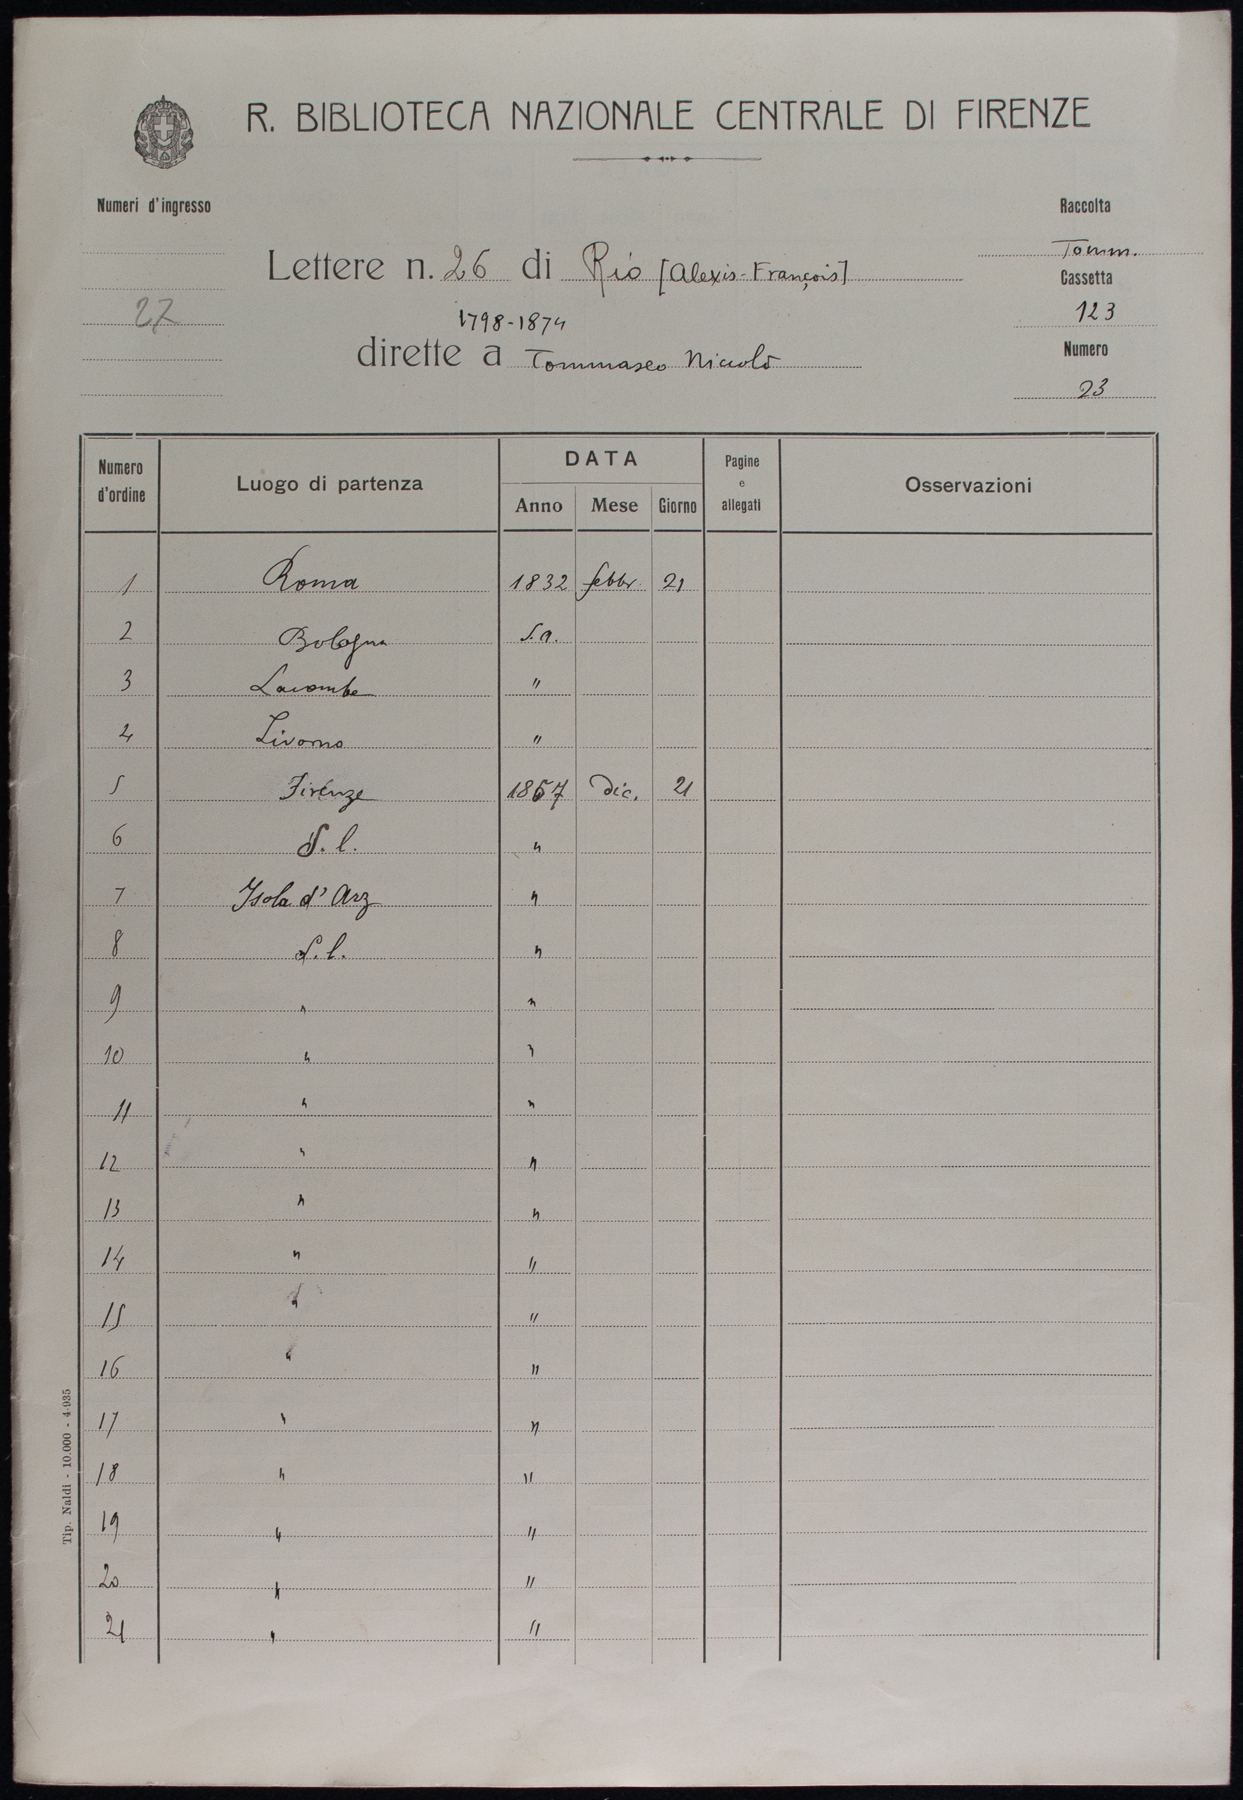 R. BIBLIOTECA NAZIONALE CENTRALE DI FIRENZE
Numeri d'ingresso
27
Raccolta
Tomm.
Cassetta
123
Numero
23
Lettere n. 26 di Rio [Alexis-François]
1798-1874
dirette a Tommaseo Niccolò
Numero d'ordine Luogo di partenza DATA Anno Mese Giorno Pagine e allegati Osservazioni
1 Roma 1832 febbr. 21
2 Bologna S.a.
3 Lacombe "
4 Livorno "
5 Firenze 1857 Dic. 21
6 S. l. "
7 Isola d'Arz "
8 S. l. "
9 " "
10 " "
11 " "
12 " "
13 " "
14 " "
15 " "
16 " "
17 " "
18 " "
19 " "
20 " "
21 " "
Tip. Naldi - 10.000 - 4-935